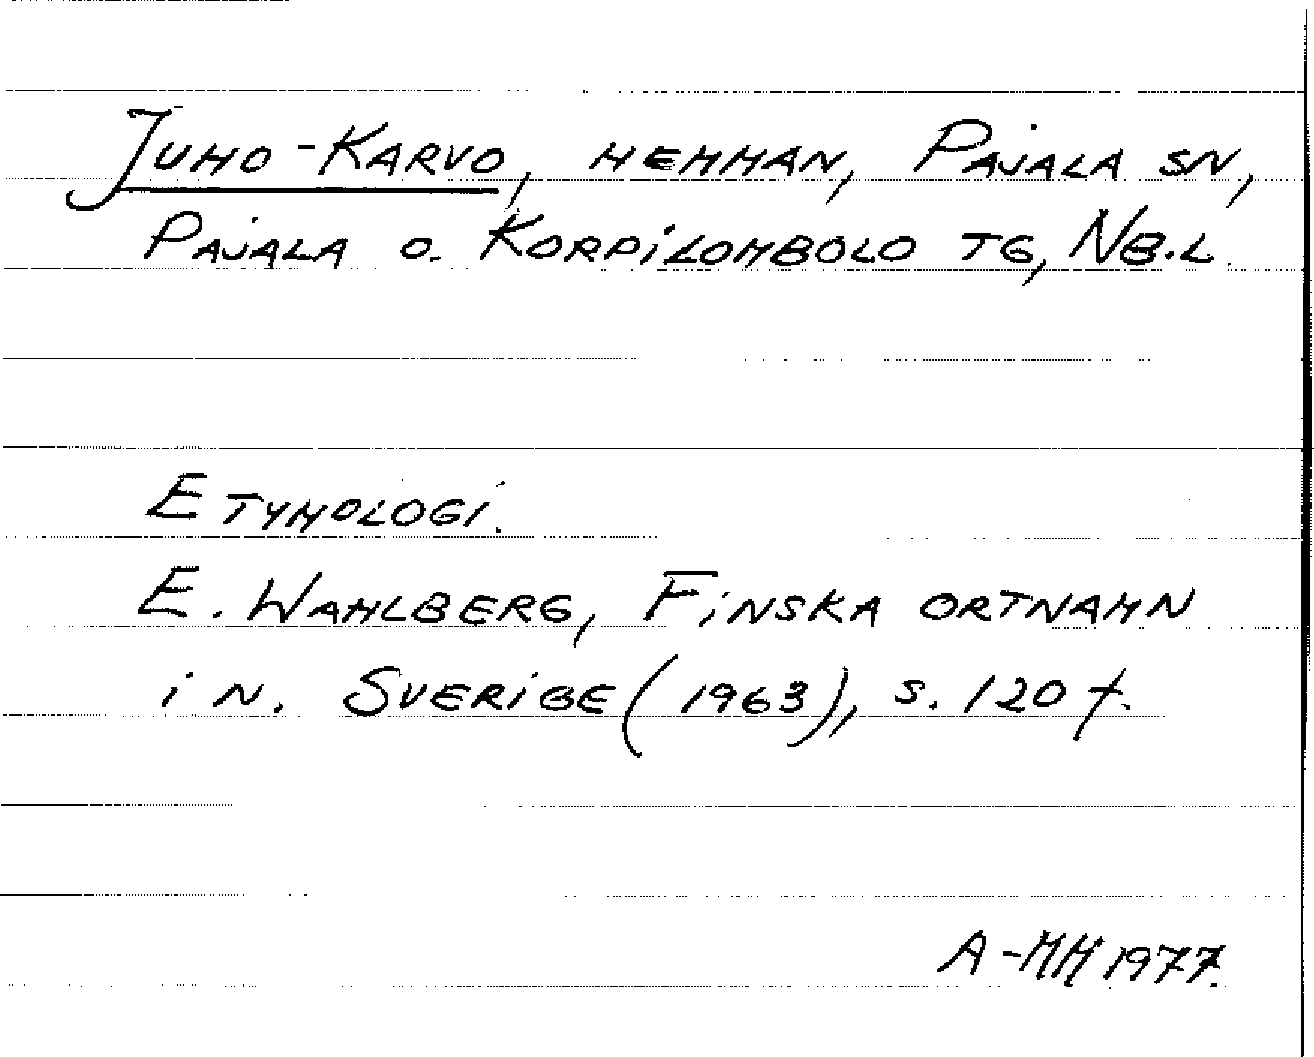 Juho-Karvo, hemman, Pajala sn,
Pajala o. Korpilombolo tg, Nb.l.
Etymologi.
E. Wahlberg, Finska ortnamn
i n. Sverige (1963), s. 120 f.
A-MH 1977.